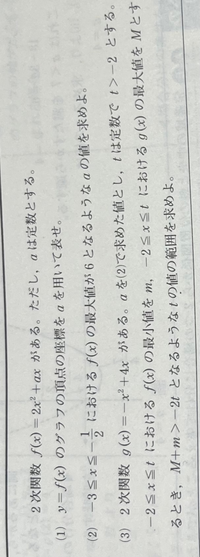 2次関数 f(x)=2x²+ax がある。ただし, a は定数とする。
(1) y=f(x) のグラフの頂点の座標を a を用いて表せ。
(2) -3≦x≦-1/2 における f(x) の最大値が6となるような a の値を求めよ。
(3) 2次関数 g(x)=-x²+4x がある。a を(2)で求めた値とし, t は定数で t>-2 とする。
-2≦x≦t における f(x) の最小値を m, -2≦x≦t における g(x) の最大値を M とす
るとき, M+m>-2t となるような t の値の範囲を求めよ。